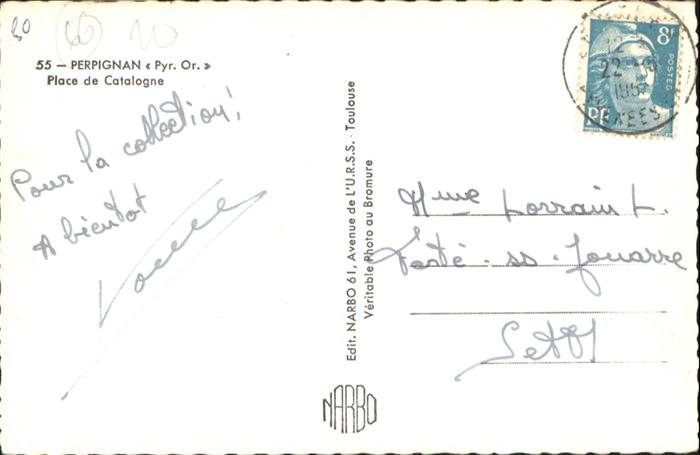 50
60
20
55 — PERPIGNAN « Pyr. Or. »
Place de Catalogne
Pour la collection!
A bientot
Edit. NARBO 61, Avenue de L'U.R.S.S. - Toulouse
Véritable Photo au Bromure
NARBO
8F
POSTES
RF
22
Mme Lorrain L.
Ferté-ss-Jouarre
S et M